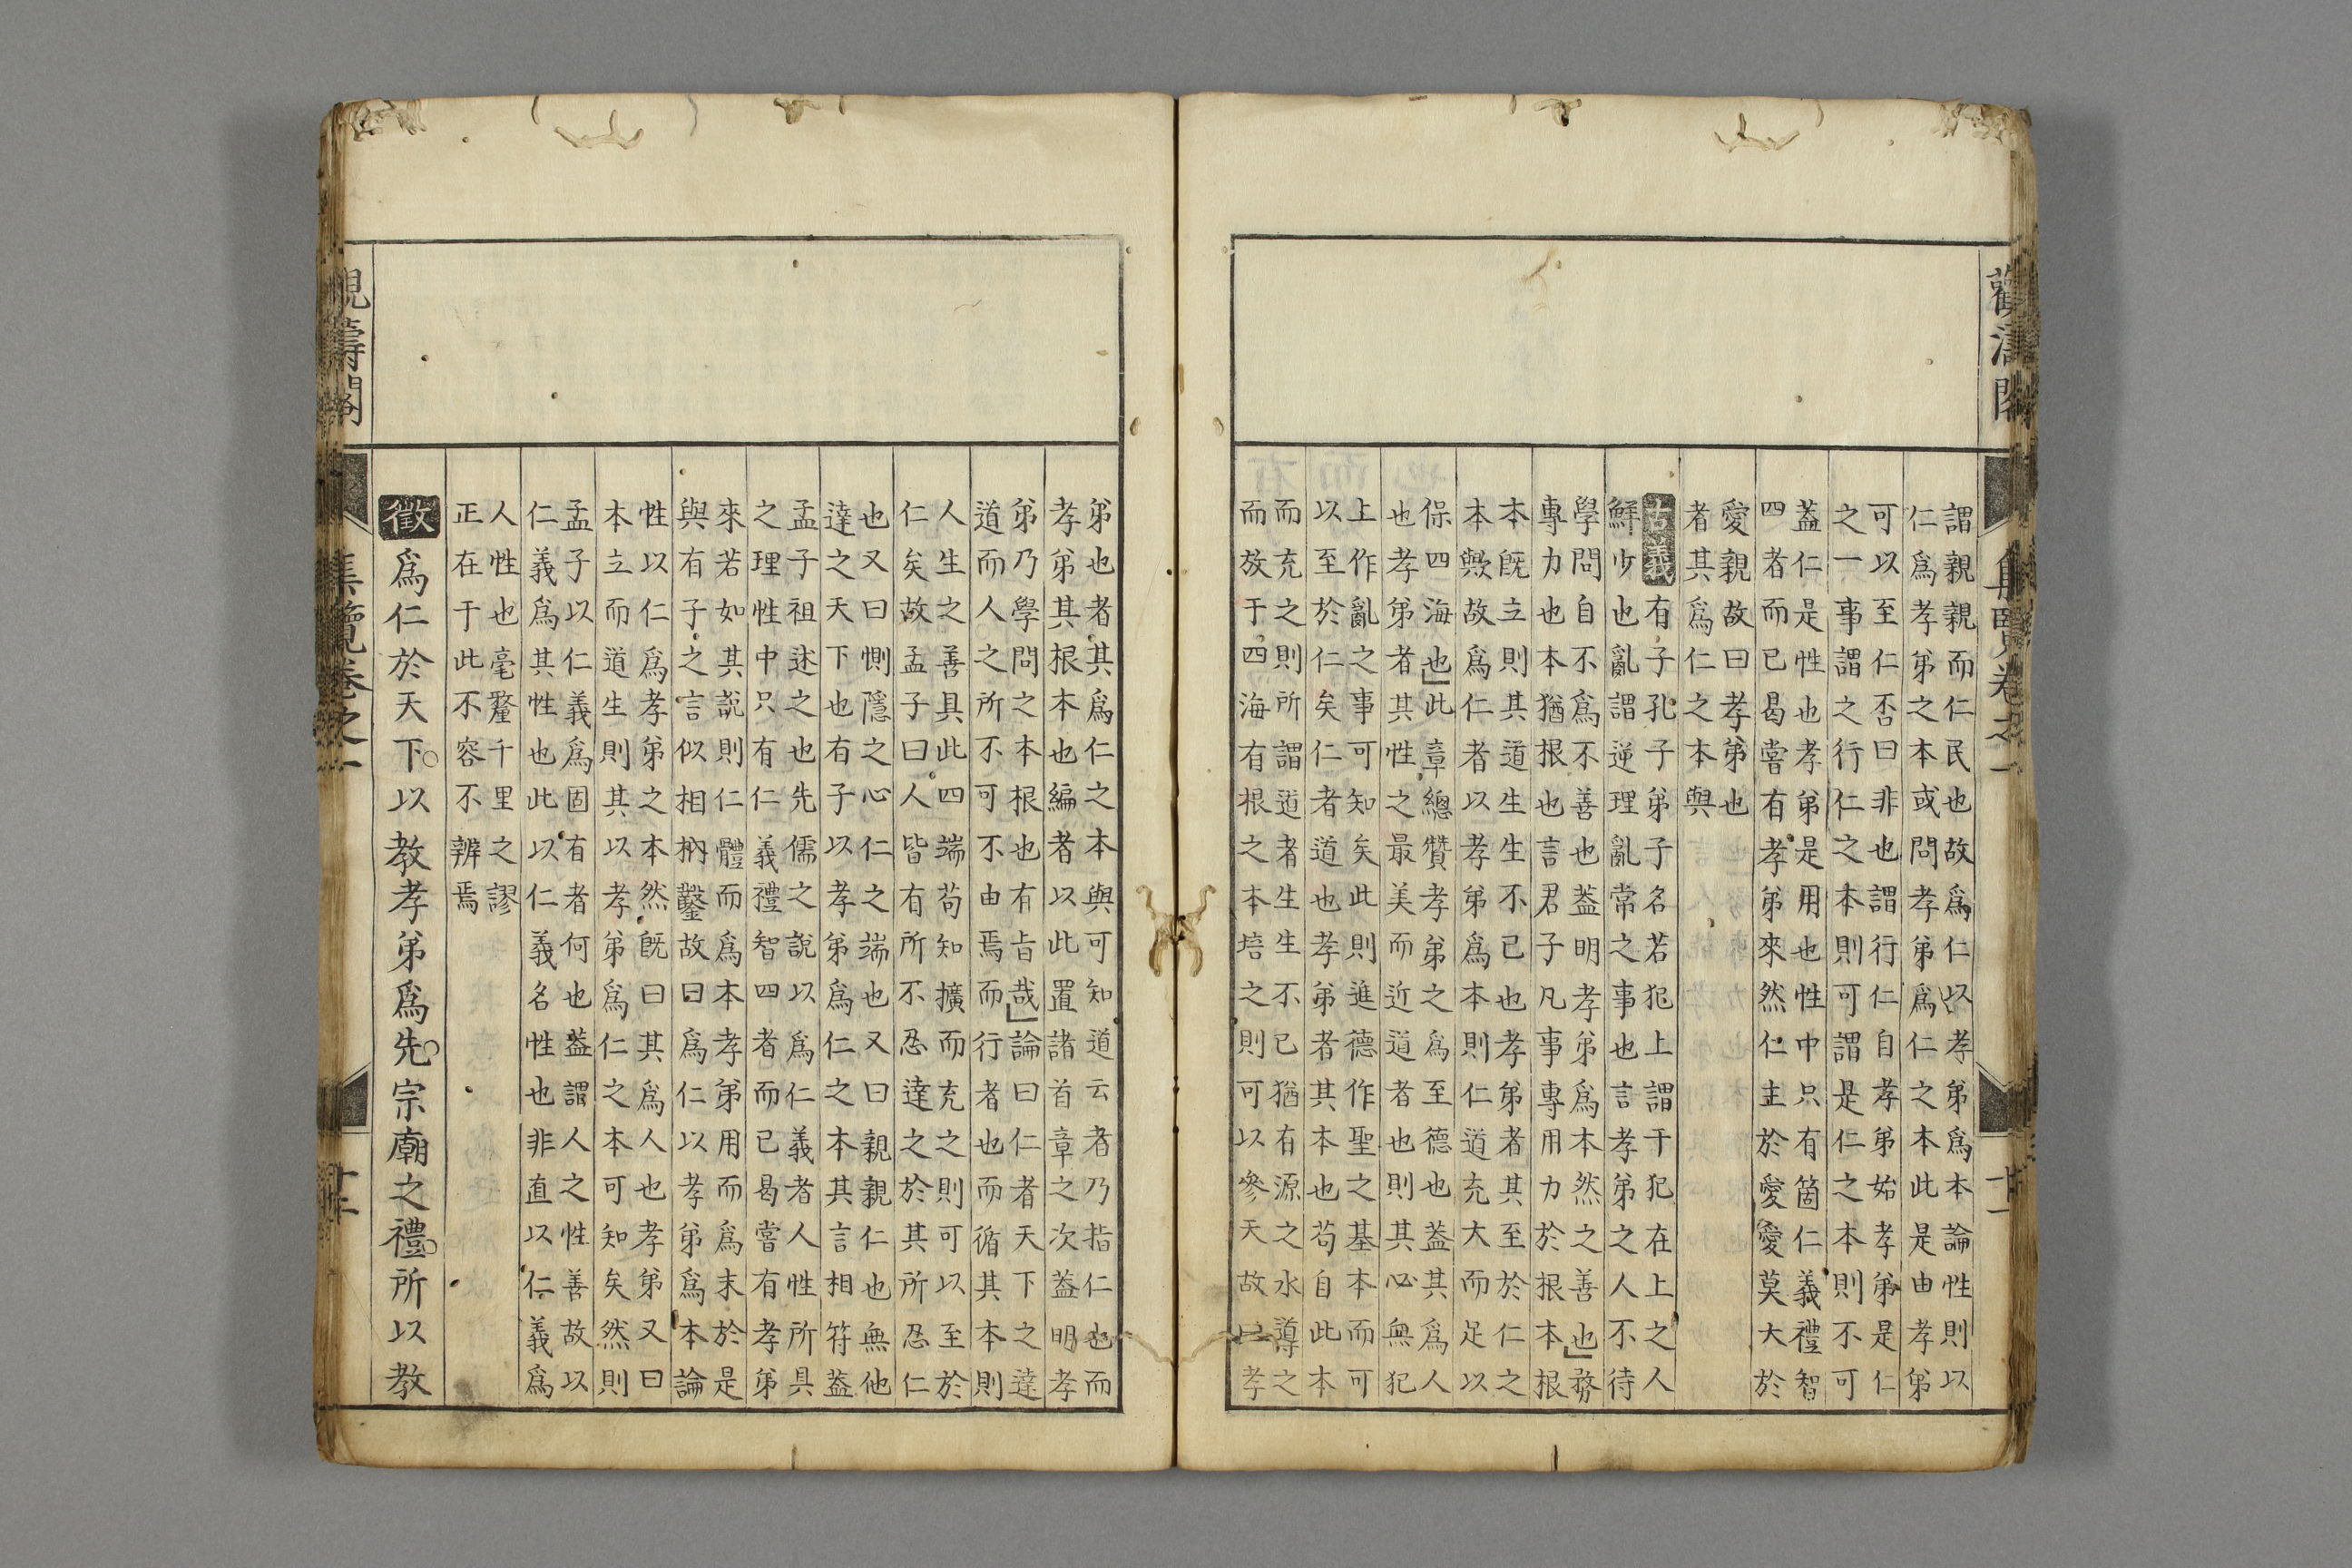 觀濤閣
集覽卷之一
十一
謂親親而仁民也故爲仁以孝弟爲本論性則以
仁爲孝弟之本或問孝弟爲仁之本此是由孝弟
可以至仁否曰非也謂行仁自孝弟始孝弟是仁
之一事謂之行仁之本則可謂是仁之本則不可
蓋仁是性也孝弟是用也性中只有箇仁義禮智
四者而已曷嘗有孝弟來然仁主於愛愛莫大於
愛親故曰孝弟也
者其爲仁之本與
古義有子孔子弟子名若犯上謂干犯在上之人
鮮少也亂謂逆理亂常之事也言孝弟之人不待
學問自不爲不善也蓋明孝弟爲本然之善也務
專力也本猶根也言君子凡事專用力於根本根
本既立則其道生生不已也孝弟者其至於仁之
本歟故爲仁者以孝弟爲本則仁道充大而足以
保四海也此章總贊孝弟之爲至德也蓋其爲人
也孝弟者其性之最美而近道者也則其心無犯
上作亂之事可知矣此則進德作聖之基本而可
以至於仁矣仁者道也孝弟者其本也苟自此本
而充之則所謂道者生生不已猶有源之水導之
而放于四海有根之本培之則可以參天故以孝
弟也者其爲仁之本與可知道云者乃指仁也而
孝弟其根本也編者以此置諸首章之次蓋明孝
弟乃學問之本根也有旨哉論曰仁者天下之達
道而人之所不可不由焉而行者也而循其本則
人生之善具此四端苟知擴而充之則可以至於
仁矣故孟子曰人皆有所不忍達之於其所忍仁
也又曰惻隱之心仁之端也又曰親親仁也無他
達之天下也有子以孝弟爲仁之本其言相符蓋
孟子祖述之也先儒之說以爲仁義者人性所具
之理性中只有仁義禮智四者而已曷嘗有孝弟
來若如其說則仁體而爲本孝弟用而爲末於是
與有子之言似相枘鑿故曰爲仁以孝弟爲本論
性以仁爲孝弟之本然既曰其爲人也孝弟又曰
本立而道生則其以孝弟爲仁之本可知矣然則
孟子以仁義爲固有者何也蓋謂人之性善故以
仁義爲其性也此以仁義名性也非直以仁義爲
人性也毫釐千里之謬
正在于此不容不辨焉
徵爲仁於天下以教孝弟爲先宗廟之禮所以教
觀濤閣
集覽卷之一